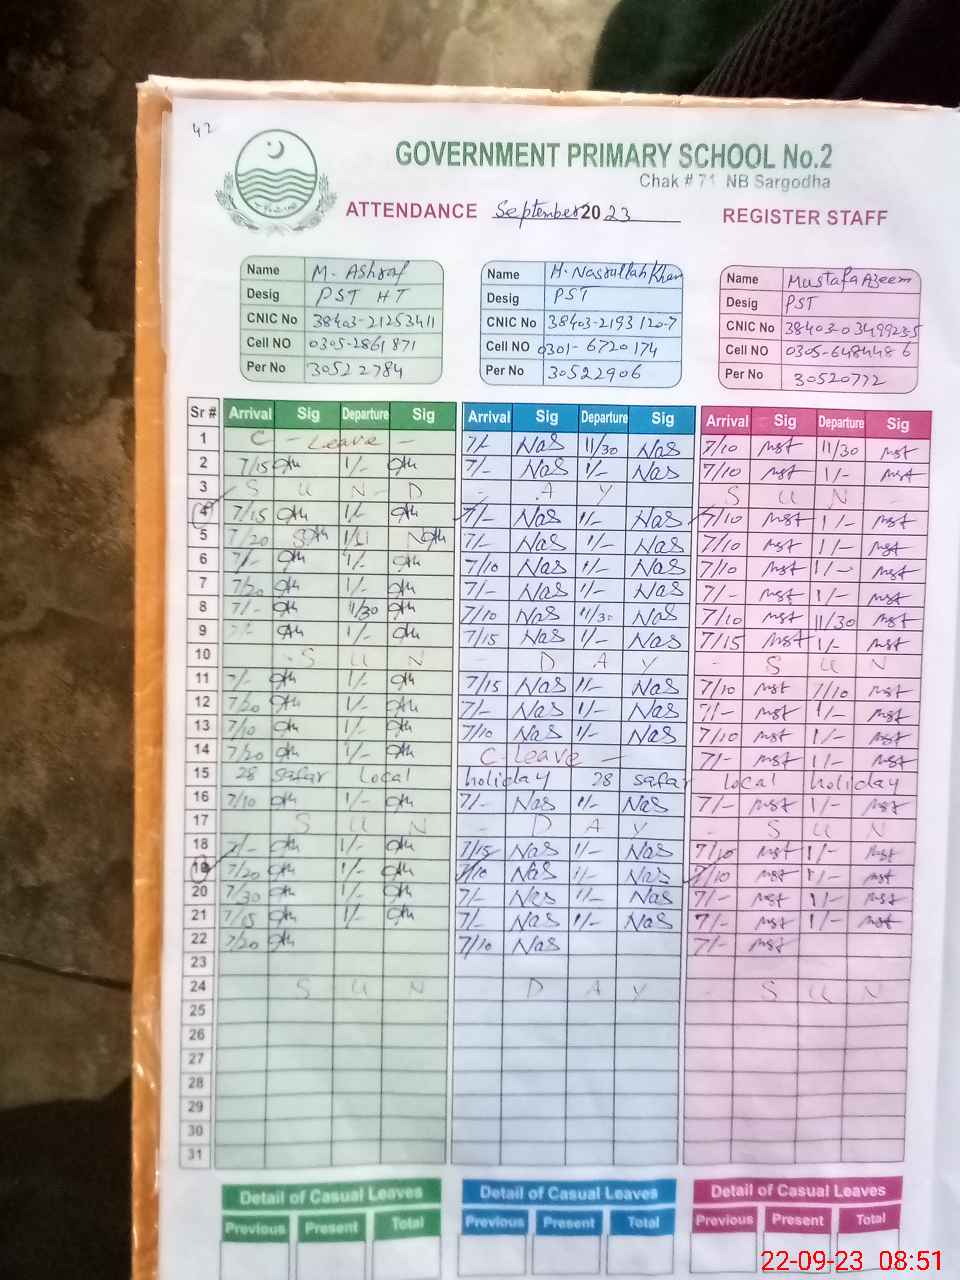 42
GOVERNMENT PRIMARY SCHOOL No.2
Chak # 71 NB Sargodha
ATTENDANCE September 2023 REGISTER STAFF
Name M. Ashraf Name M. Nasrullah Khan Name Mustafa Azeem
Desig PST HT Desig PST Desig PST
CNIC No 38403-21253411 CNIC No 38403-2193120-7 CNIC No 38403-0349923-5
Cell NO 0305-2861871 Cell NO 0301-6720174 Cell NO 0305-6484486
Per No 30522784 Per No 30522906 Per No 30520772
Sr # Arrival Sig Departure Sig Arrival Sig Departure Sig Arrival Sig Departure Sig
1 C - Leave - 7/- Nas 11/30 Nas 7/10 mst 11/30 mst
2 7/15 1/- 7/- Nas 1/- Nas 7/10 mst 1/- mst
3 S U N D - A Y S U N -
4 7/15 1/- 7/- Nas 1/- Nas 7/10 mst 1/- mst
5 7/20 7/- Nas 1/- Nas 7/10 mst 1/- mst
6 7/- 1/- 7/10 Nas 1/- Nas 7/10 mst 1/- mst
7 7/20 1/- 7/- Nas 1/- Nas 7/- mst 1/- mst
8 7/- 11/30 7/10 Nas 11/30 Nas 7/10 mst 11/30 mst
9 7/- 1/- 7/15 Nas 1/- Nas 7/15 mst 1/- mst
10 - S U N - D A Y - S U N
11 7/- 1/- 7/15 Nas 1/- Nas 7/10 mst 7/10 mst
12 7/20 1/- 7/- Nas 1/- Nas 7/- mst 1/- mst
13 7/10 1/- 7/10 Nas 1/- Nas 7/10 mst 1/- mst
14 7/20 1/- C-Leave - 7/- mst 1/- mst
15 28 safar Local holiday 28 safar local holiday
16 7/10 1/- 7/- Nas 1/- Nas 7/- mst 1/- mst
17 S U N - D A Y - S U N
18 7/- 1/- 7/15 Nas 1/- Nas 7/10 mst 1/- mst
19 7/20 1/- 7/10 Nas 1/- Nas 7/10 mst 1/- mst
20 7/30 1/- 7/- Nas 1/- Nas 7/- mst 1/- mst
21 7/15 1/- 7/- Nas 1/- Nas 7/- mst 1/- mst
22 7/20 7/10 Nas 7/- mst
23
24 S U N D A Y - S U N
25
26
27
28
29
30
31
Detail of Casual Leaves Detail of Casual Leaves Detail of Casual Leaves
Previous Present Total Previous Present Total Previous Present Total
22-09-23 08:51